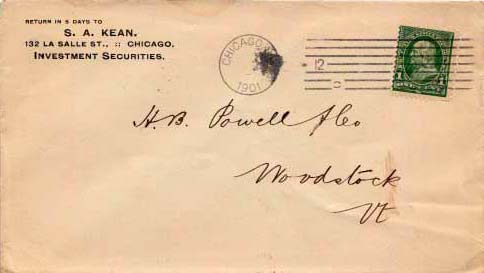 RETURN IN 5 DAYS TO
S. A. KEAN.
132 LA SALLE ST., :: CHICAGO.
INVESTMENT SECURITIES.
CHICAGO
1901
12
1 1
H. B. Powell & Co
Woodstock
Vt